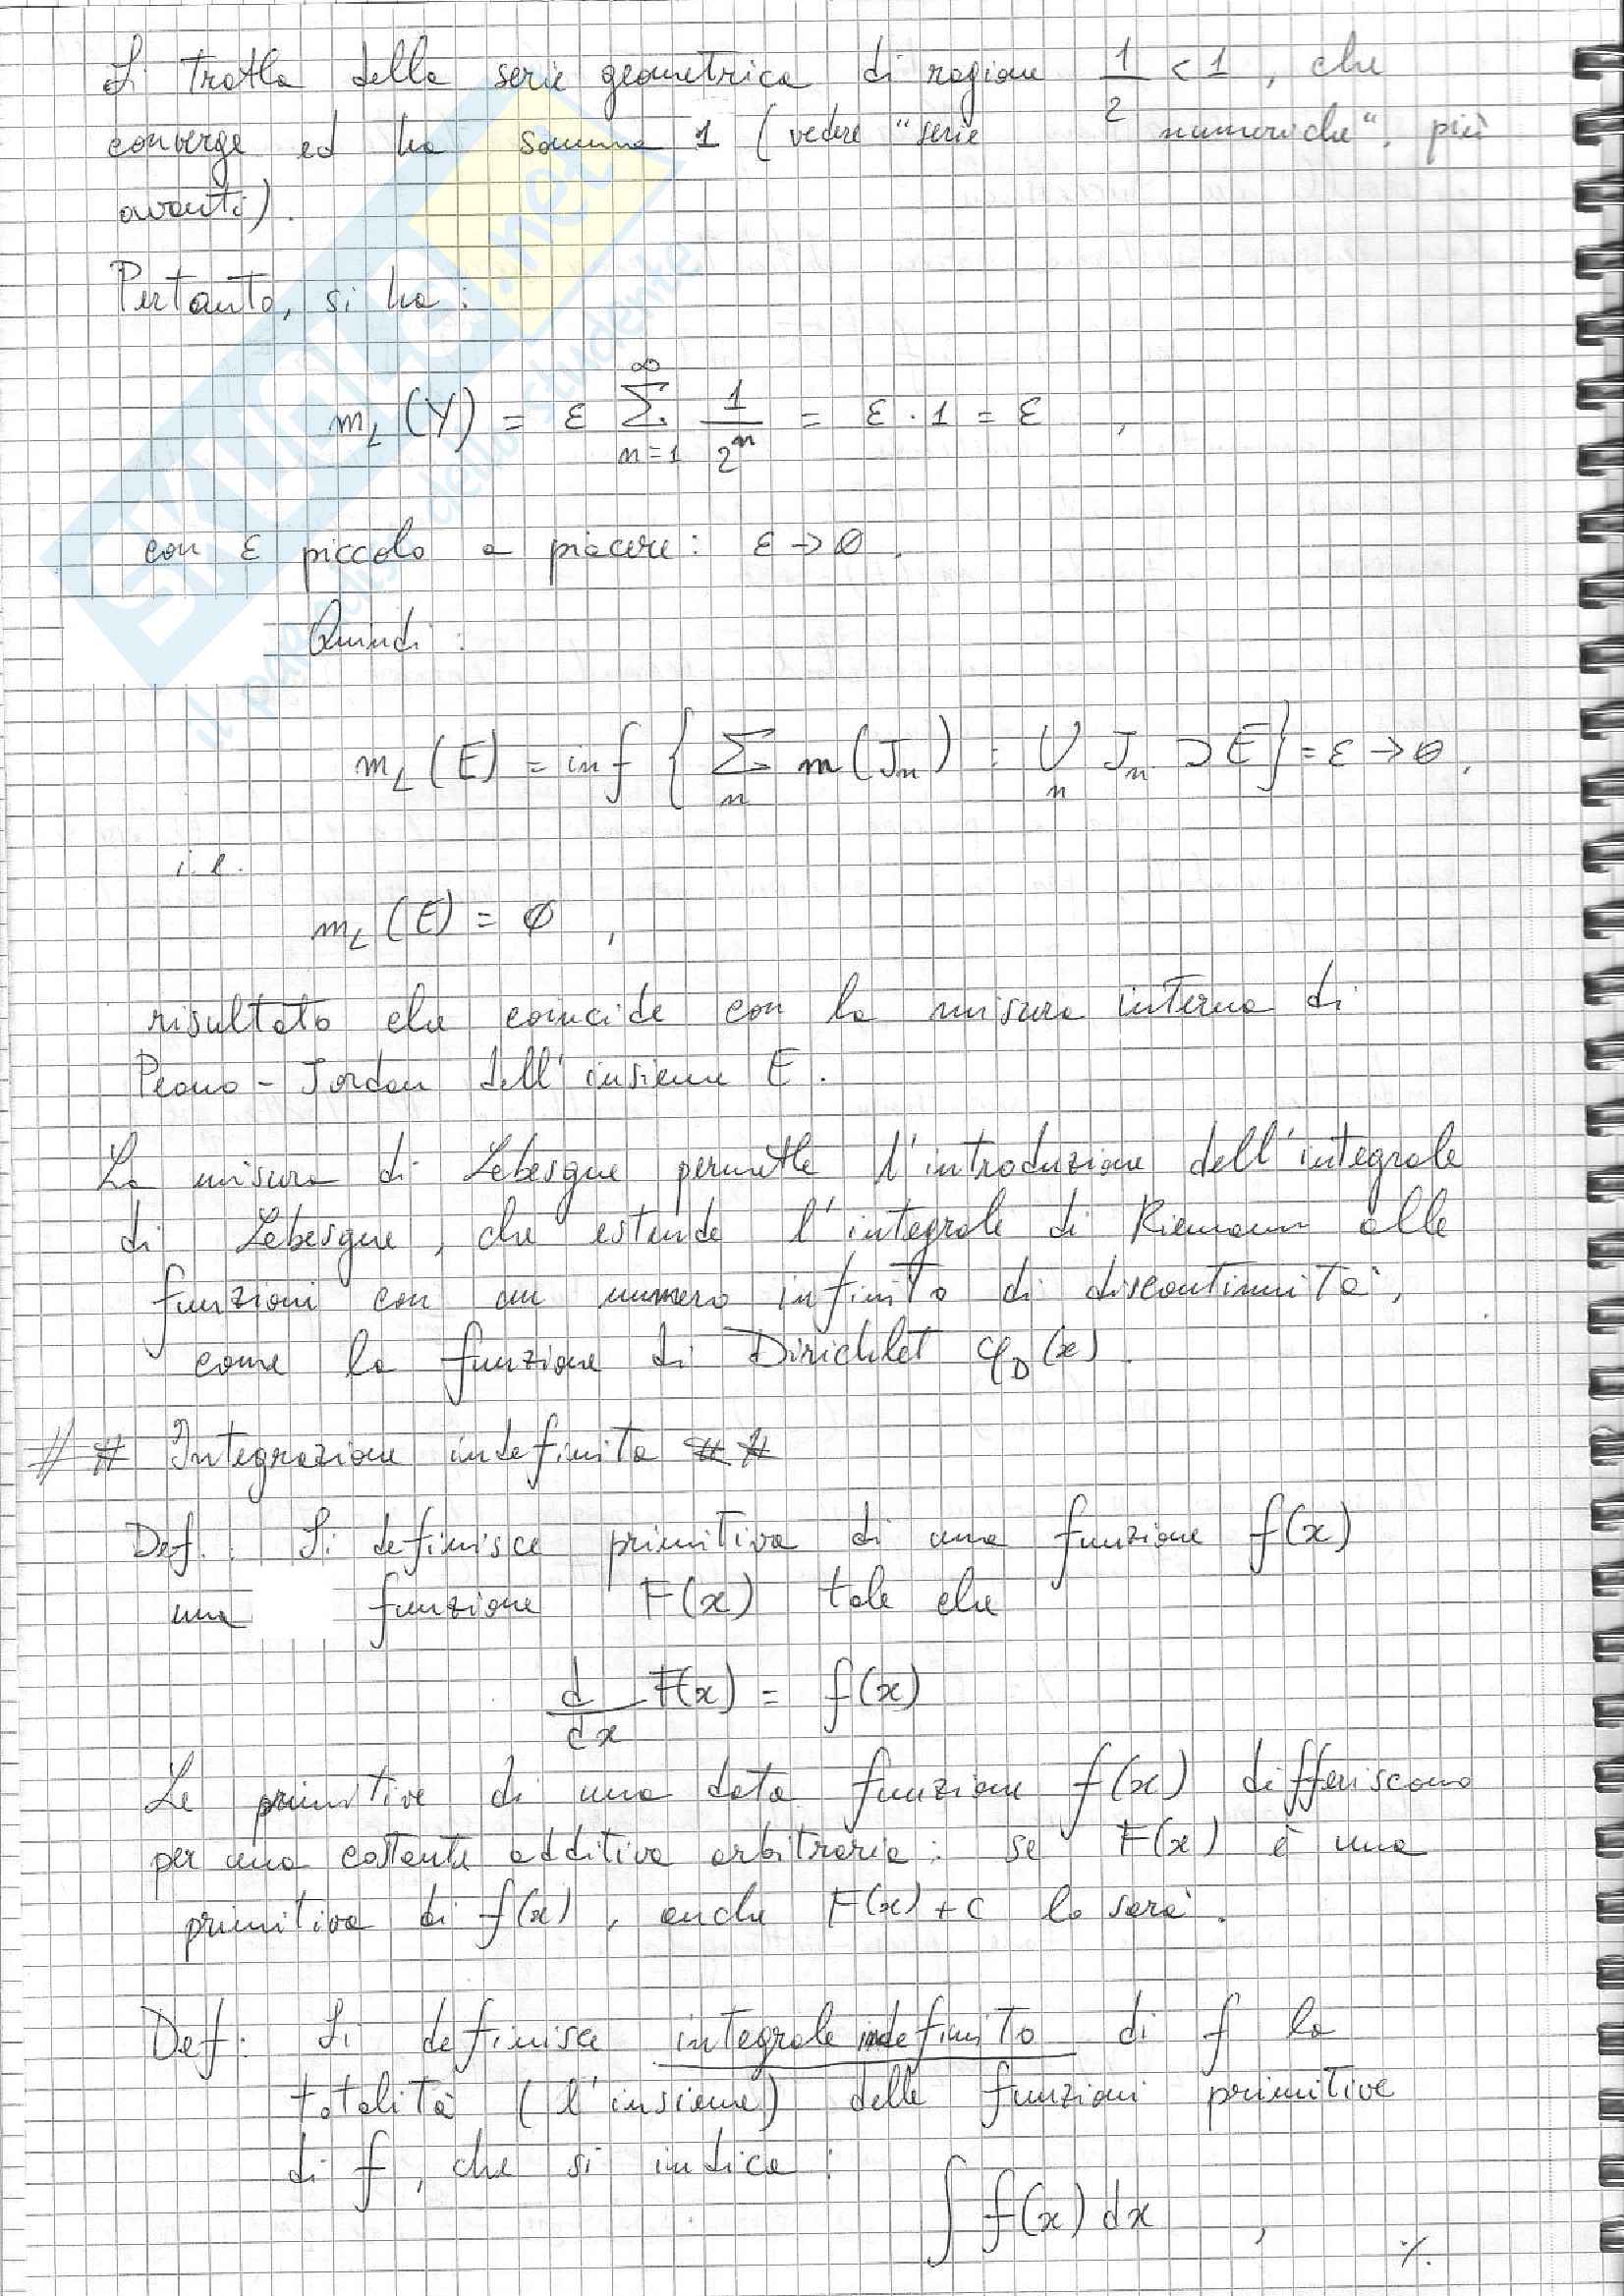 Si tratta della serie geometrica di ragione 1/2 < 1, che
converge ed ha somma 1 (vedere "serie numeriche", più
avanti).
Pertanto, si ha:
m_L(Y) = ε ∑_{n=1}^{∞} 1/2^n = ε · 1 = ε ,
con ε piccolo a piacere: ε → 0.
Quindi:
m_L(E) = inf { ∑_n m(J_n) : ∪_n J_n ⊃ E } = ε → 0.
i.e.
m_L(E) = 0 ,
risultato che coincide con la misura interna di
Peano-Jordan dell'insieme E.
La misura di Lebesgue permette l'introduzione dell'integrale
di Lebesgue, che estende l'integrale di Riemann alle
funzioni con un numero infinito di discontinuità,
come la funzione di Dirichlet φ_D(x).
# # Integrazione indefinita # #
Def.: Si definisce primitiva di una funzione f(x)
una funzione F(x) tale che
d/dx F(x) = f(x)
Le primitive di una data funzione f(x) differiscono
per una costante additiva arbitraria: se F(x) è una
primitiva di f(x), anche F(x)+c lo sarà.
Def: Si definisce integrale indefinito di f la
totalità (l'insieme) delle funzioni primitive
di f, che si indica:
∫ f(x) dx ,
%.
SKUOLA.net
il paradiso dello studente